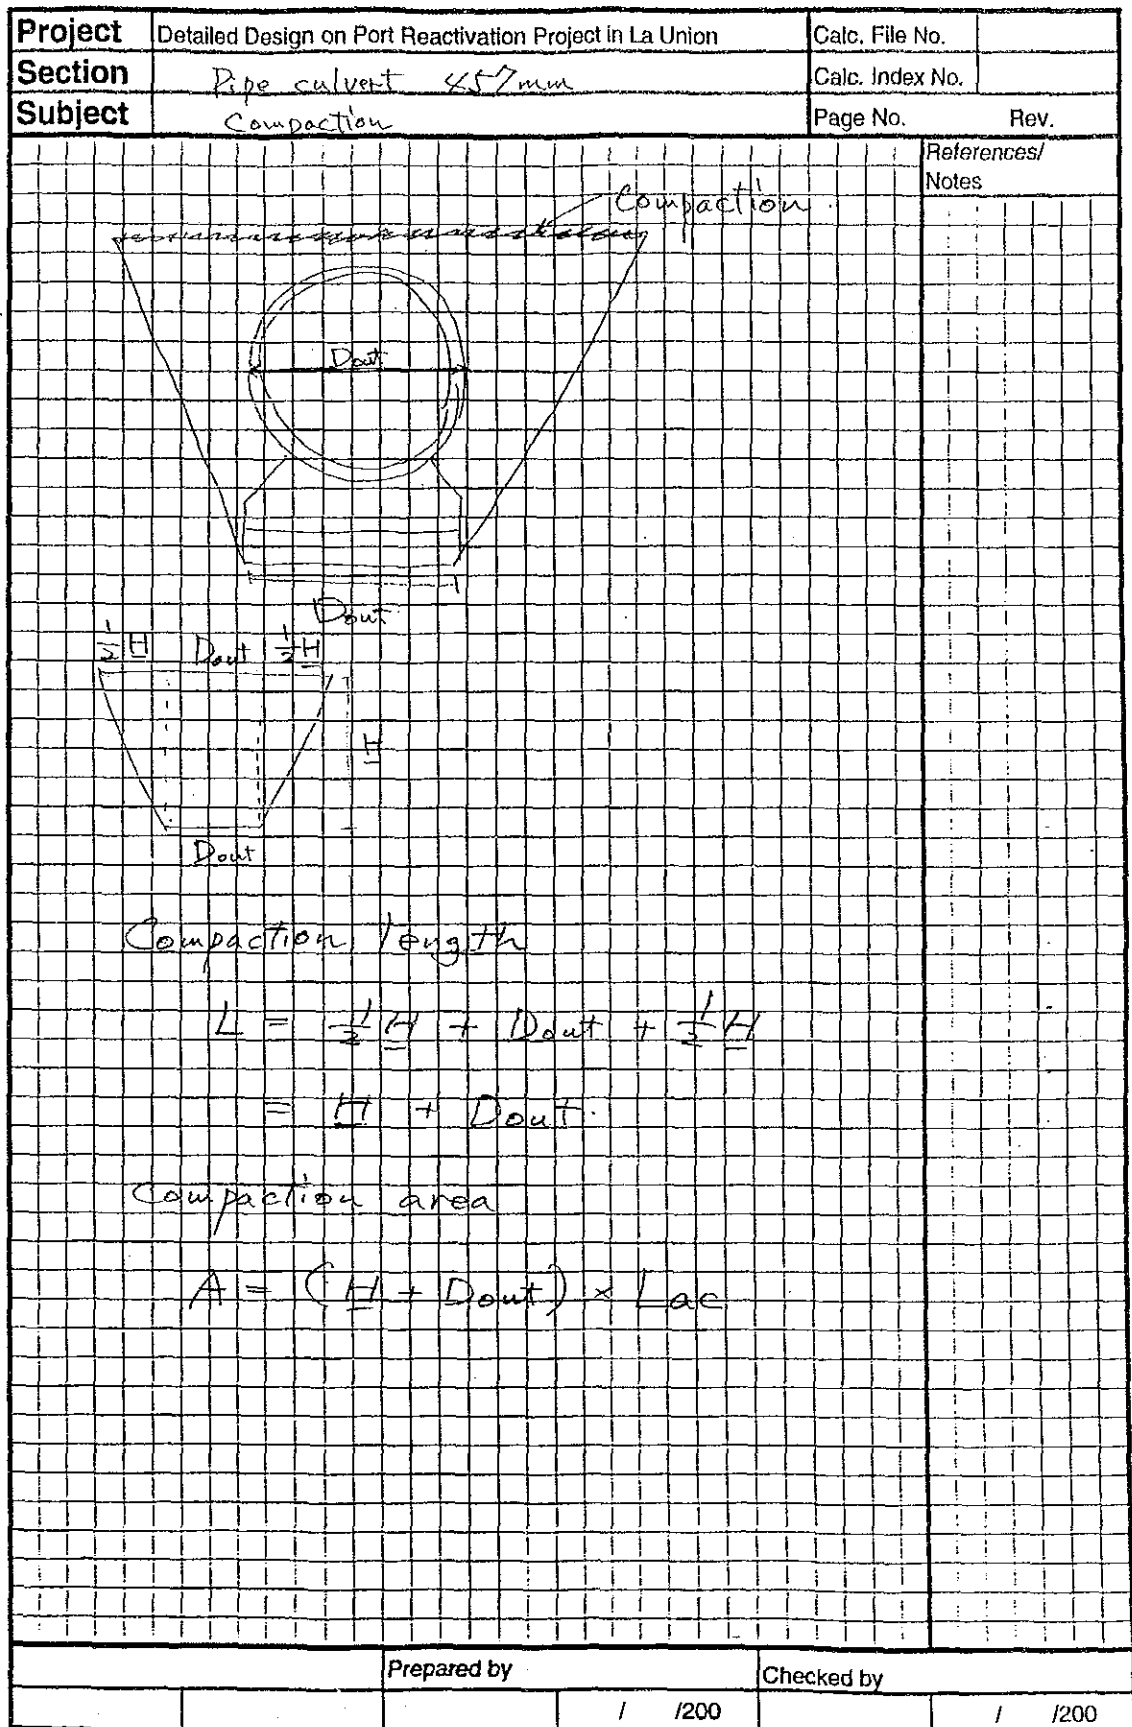 Project Detailed Design on Port Reactivation Project in La Union Calc. File No.
Section Pipe culvert 457mm Calc. Index No.
Subject Compaction Page No. Rev.
References/
Notes
Compaction
Dout
Dout
½H Dout ½H
H
Dout
Compaction length
L = ½H + Dout + ½H
= H + Dout
Compaction area
A = (H + Dout) × Lac
Prepared by Checked by
/ /200 / /200